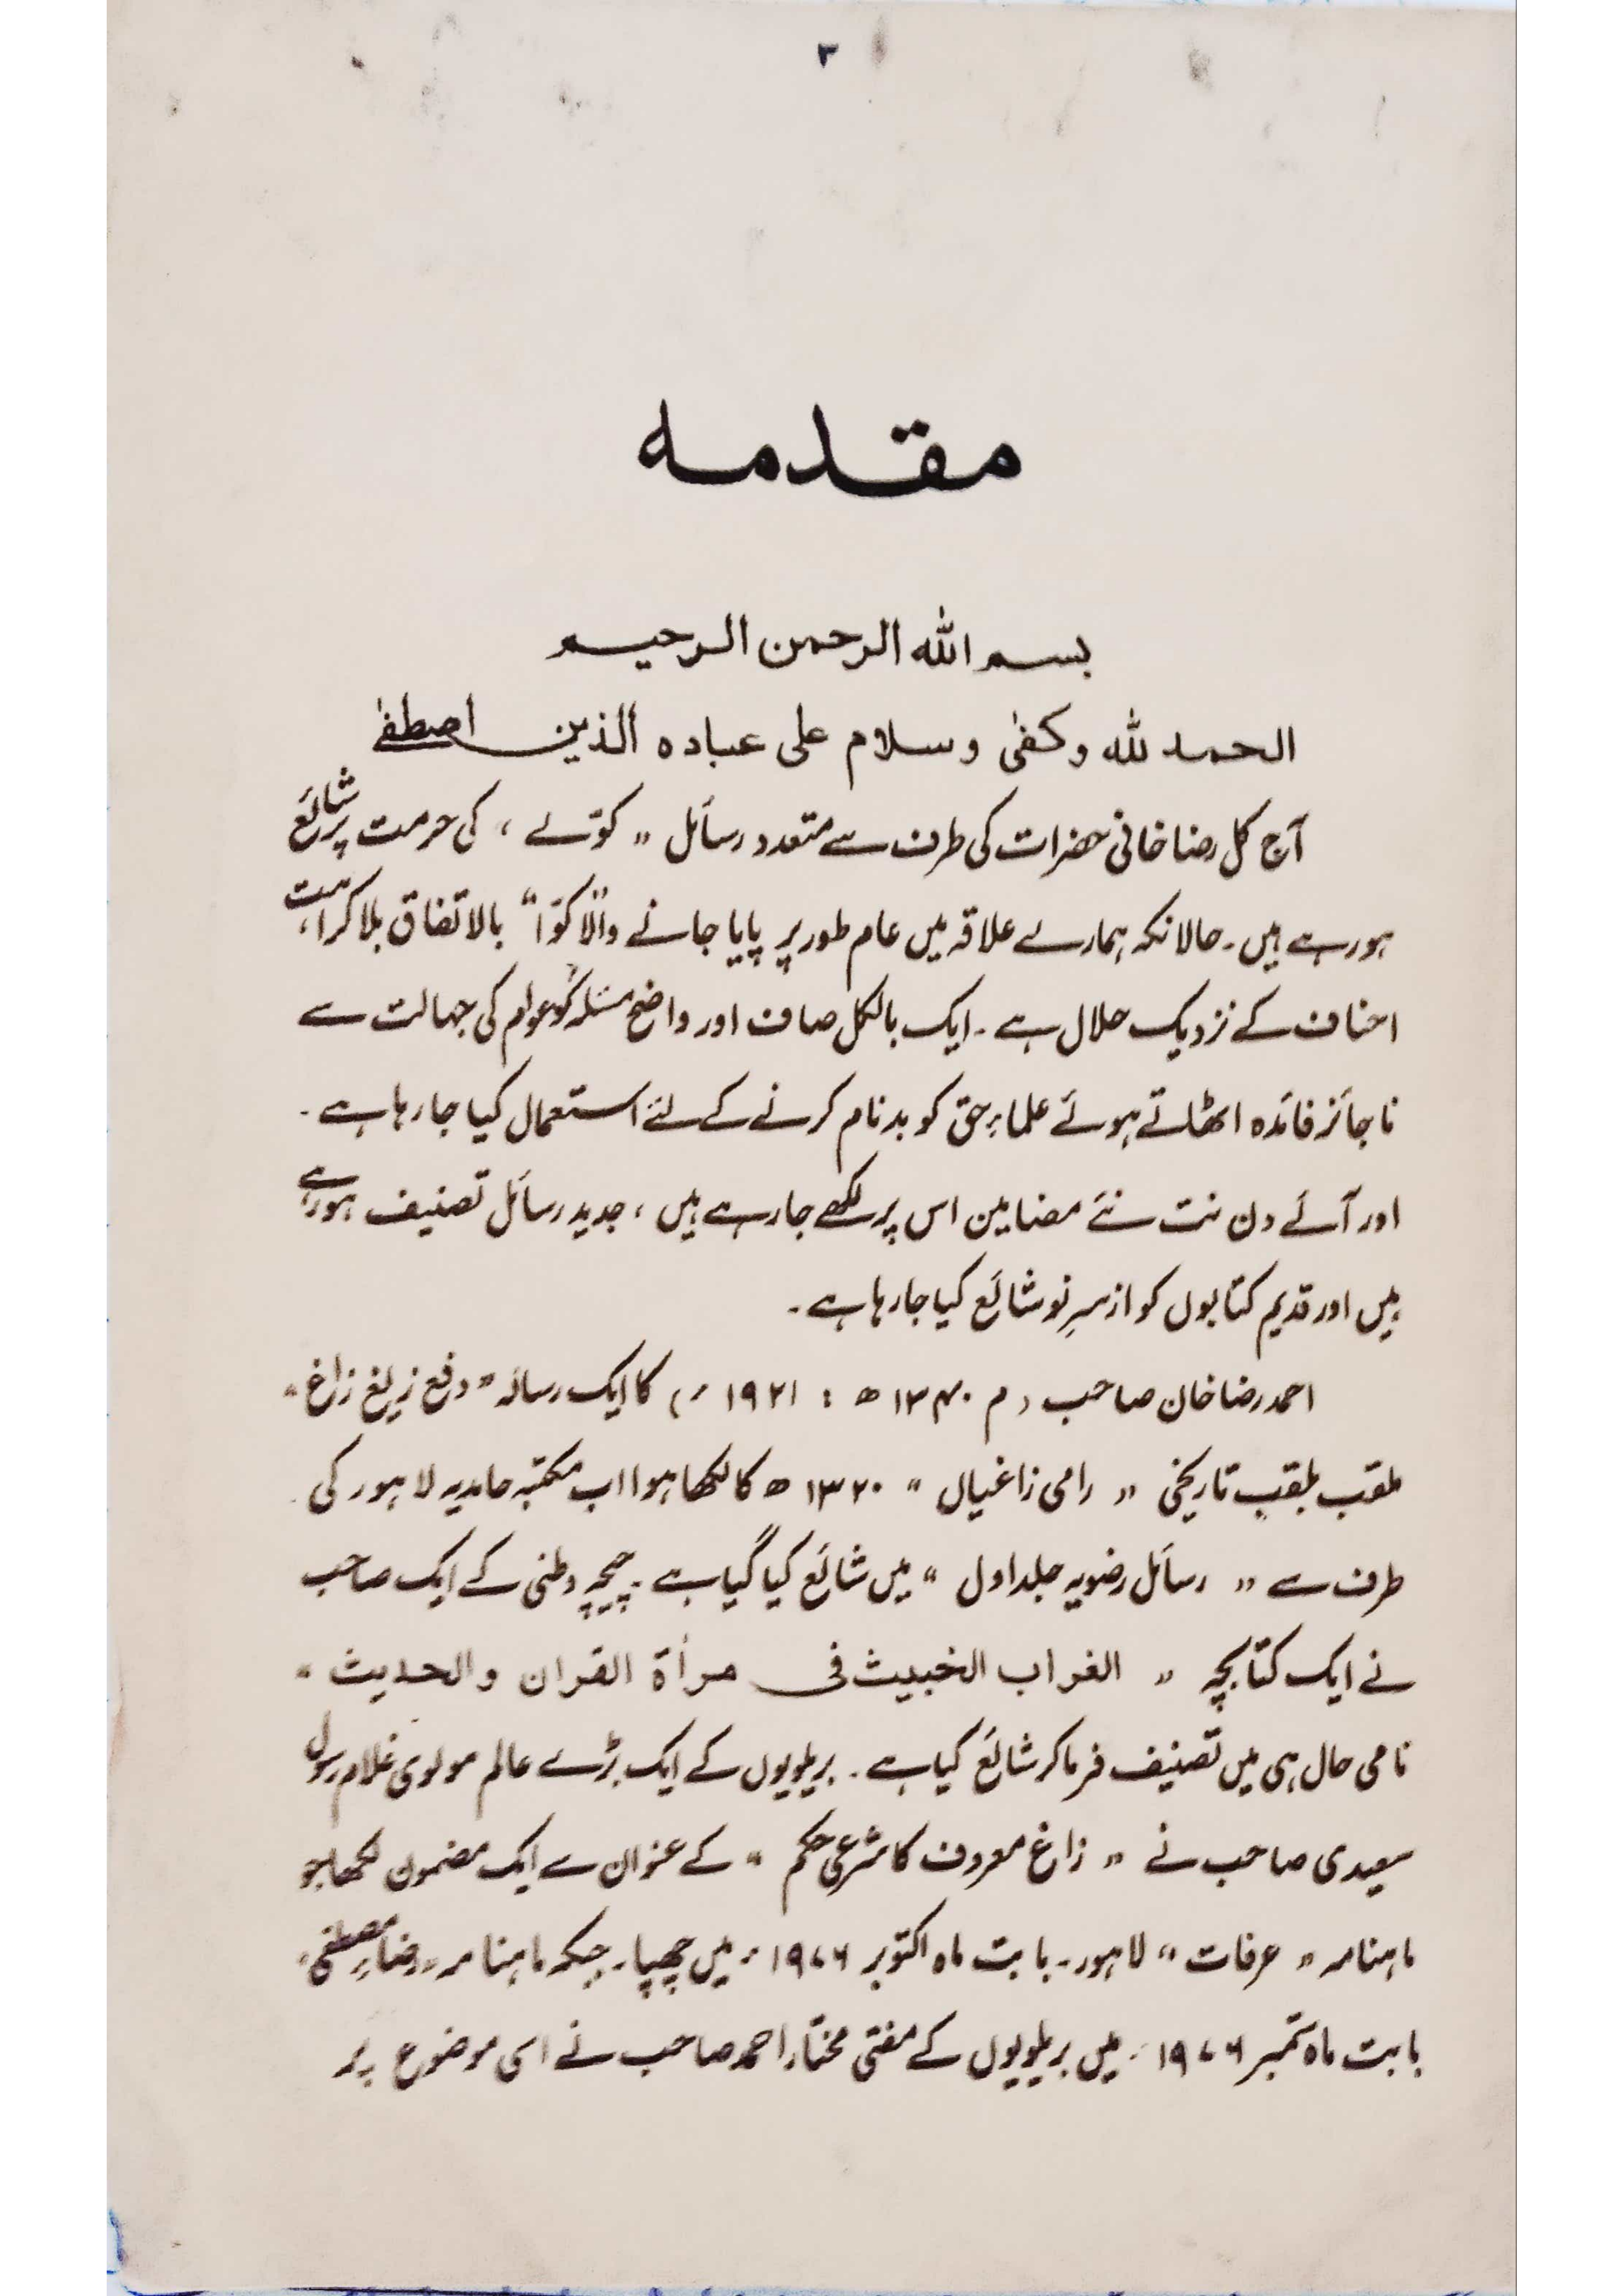 ۳
مقدمه
بسم الله الرحمن الرحیم
الحمد لله وکفیٰ وسلام علی عباده الذین اصطفیٰ
آج کل رضاخانی حضرات کی طرف سے متعدد رسائل " کوّے ، کی حرمت پر شائع
ہورہے ہیں۔ حالانکہ ہمارے علاقہ میں عام طور پر پایا جانے والا "کوّا" بالاتفاق بلا کراہت،
احناف کے نزدیک حلال ہے۔ ایک بالکل صاف اور واضح مسئلہ کو عوام کی جہالت سے
ناجائز فائدہ اٹھاتے ہوئے علماء حق کو بدنام کرنے کے لئے استعمال کیا جارہا ہے۔
اور آئے دن نت نئے مضامین اس پر لکھے جارہے ہیں ، جدید رسائل تصنیف ہورہے
ہیں اور قدیم کتابوں کو از سرِ نو شائع کیا جارہا ہے۔
احمد رضا خان صاحب (م ۱۳۴۰ ھ : ۱۹۲۱ ء) کا ایک رسالہ " دفع زیغ زاغ "
ملقب بلقبِ تاریخی " رامی زاغیاں " ۱۳۲۰ ھ کا لکھا ہوا اب مکتبہ حامدیہ لاہور کی
طرف سے " رسائل رضویہ جلد اول " میں شائع کیا گیا ہے۔ چیچہ وطنی کے ایک صاحب
نے ایک کتابچہ " الغراب الخبیث فی مرأة القران والحدیث "
نامی حال ہی میں تصنیف فرما کر شائع کیا ہے۔ بریلویوں کے ایک بڑے عالم مولوی غلام رسول
سعیدی صاحب نے " زاغ معروف کا شرعی حکم " کے عنوان سے ایک مضمون لکھا جو
ماہنامہ " عرفات " لاہور۔ بابت ماہ اکتوبر ۱۹۷۶ء میں چھپا۔ جبکہ ماہنامہ " رضائے مصطفیٰ "
بابت ماہ ستمبر ۱۹۷۶ء میں بریلویوں کے مفتی مختار احمد صاحب نے اسی موضوع پر